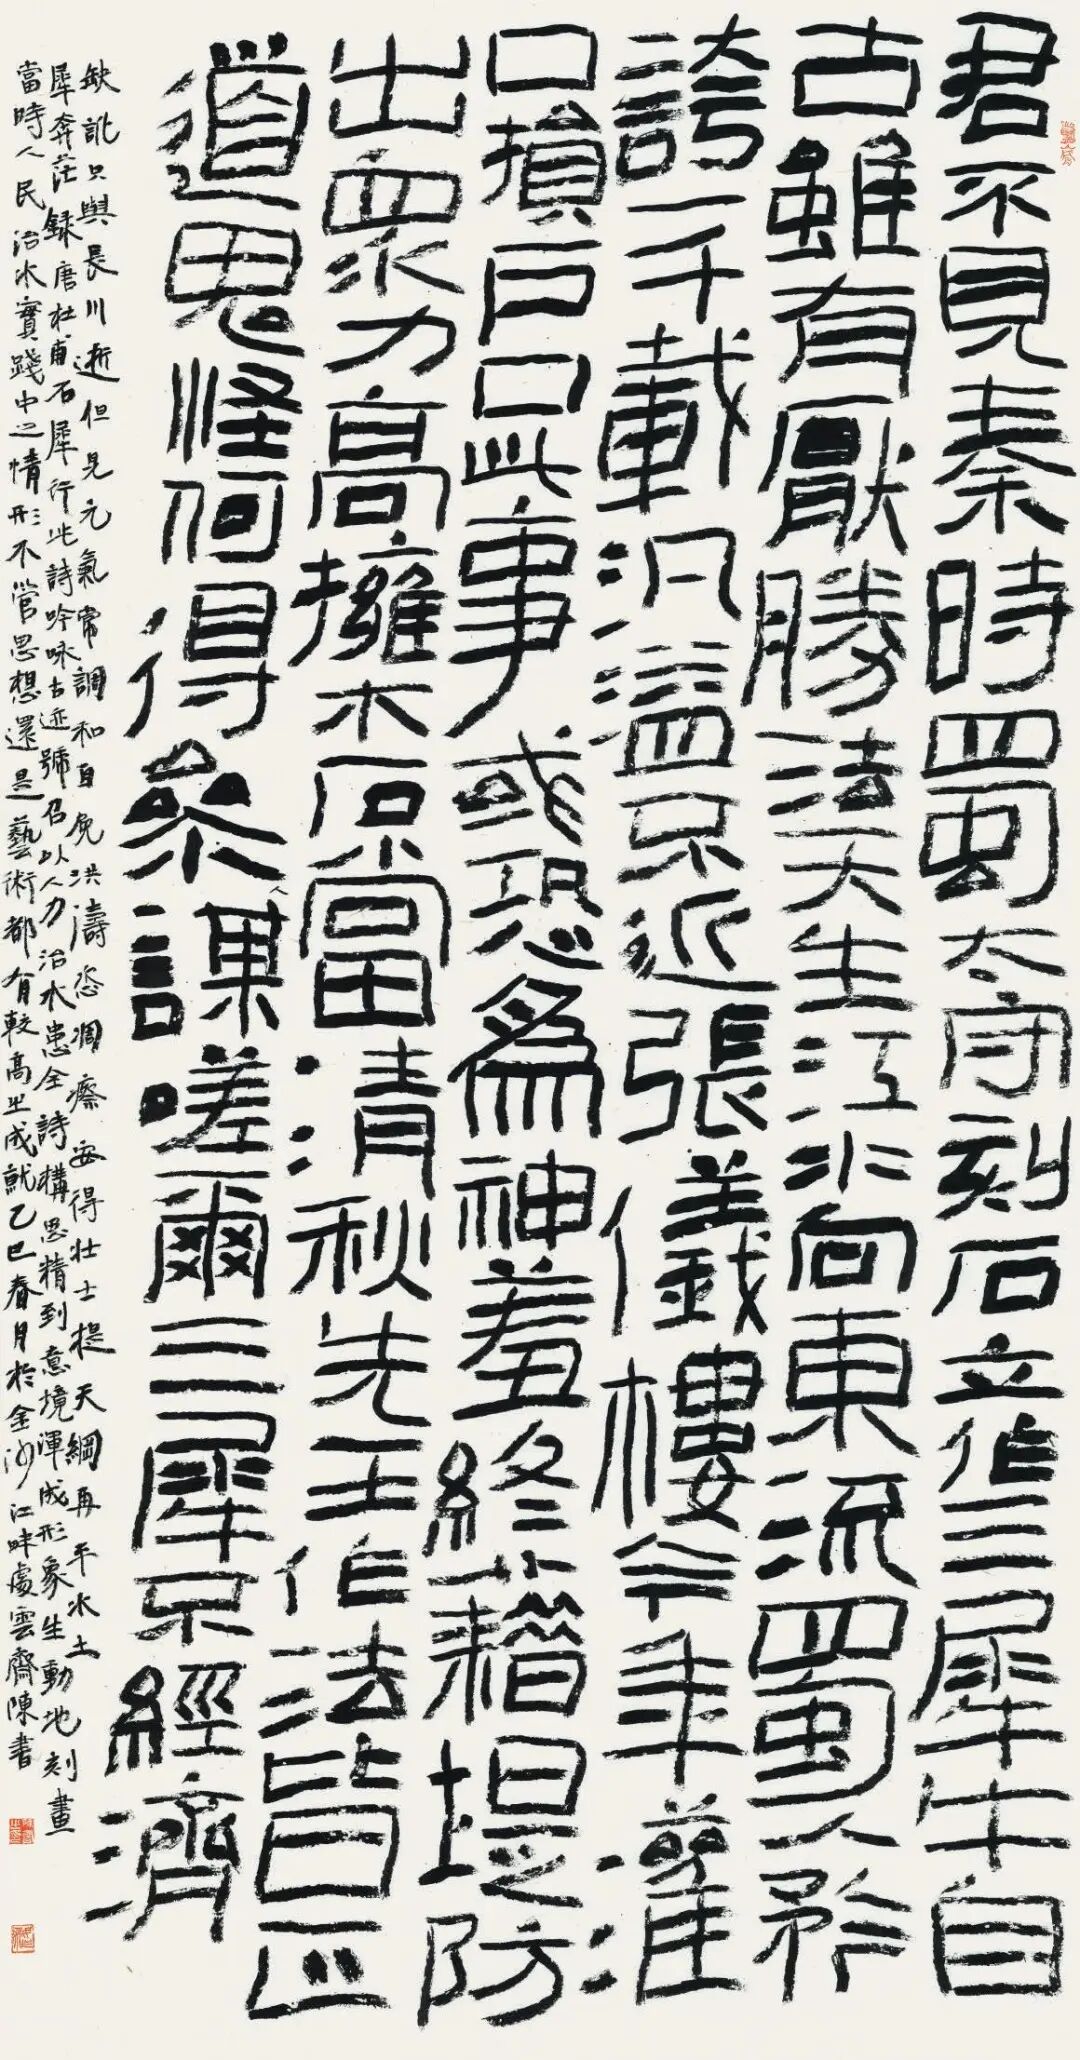 君不見秦時蜀太守刻石立作三犀牛自
古雖有厭勝法天生江水向東流蜀人矜
誇一千載汎溢不近張儀樓今年灌
口損戶口此事或恐為神羞終藉堤防
出眾力高擁木石當清秋先王作法皆正
道鬼怪何得參人謀嗟爾三犀不經濟
缺訛只與長川逝但見元氣常調和自免洪濤恣凋瘵安得壯士提天綱再平水土
犀奔茫錄唐杜甫石犀行此詩吟咏古迹號召以人力治水患全詩構思精到意境渾成形象生動地刻畫
當時人民治水實踐中之情形不管思想還是藝術都有較高之成就乙巳春月於金沙江畔雲齋陳書